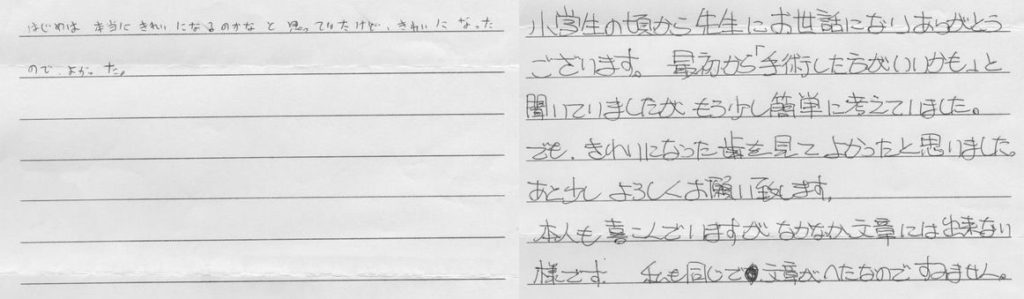 はじめは 本当にきれいになるのかな と 思っていたけど、きれいに なった
ので、よかった。
小学生の頃から先生にお世話になりありがとう
ございます。 最初から「手術した方がいいかも」と
聞いていましたが もう少し簡単に考えていました。
でも、きれいになった歯を見て よかったと思いました。
あと少し よろしくお願い致します。
本人も喜こんでいますが なかなか文章には出来ない
様です。 私も同じで文章がへたなのですみません。